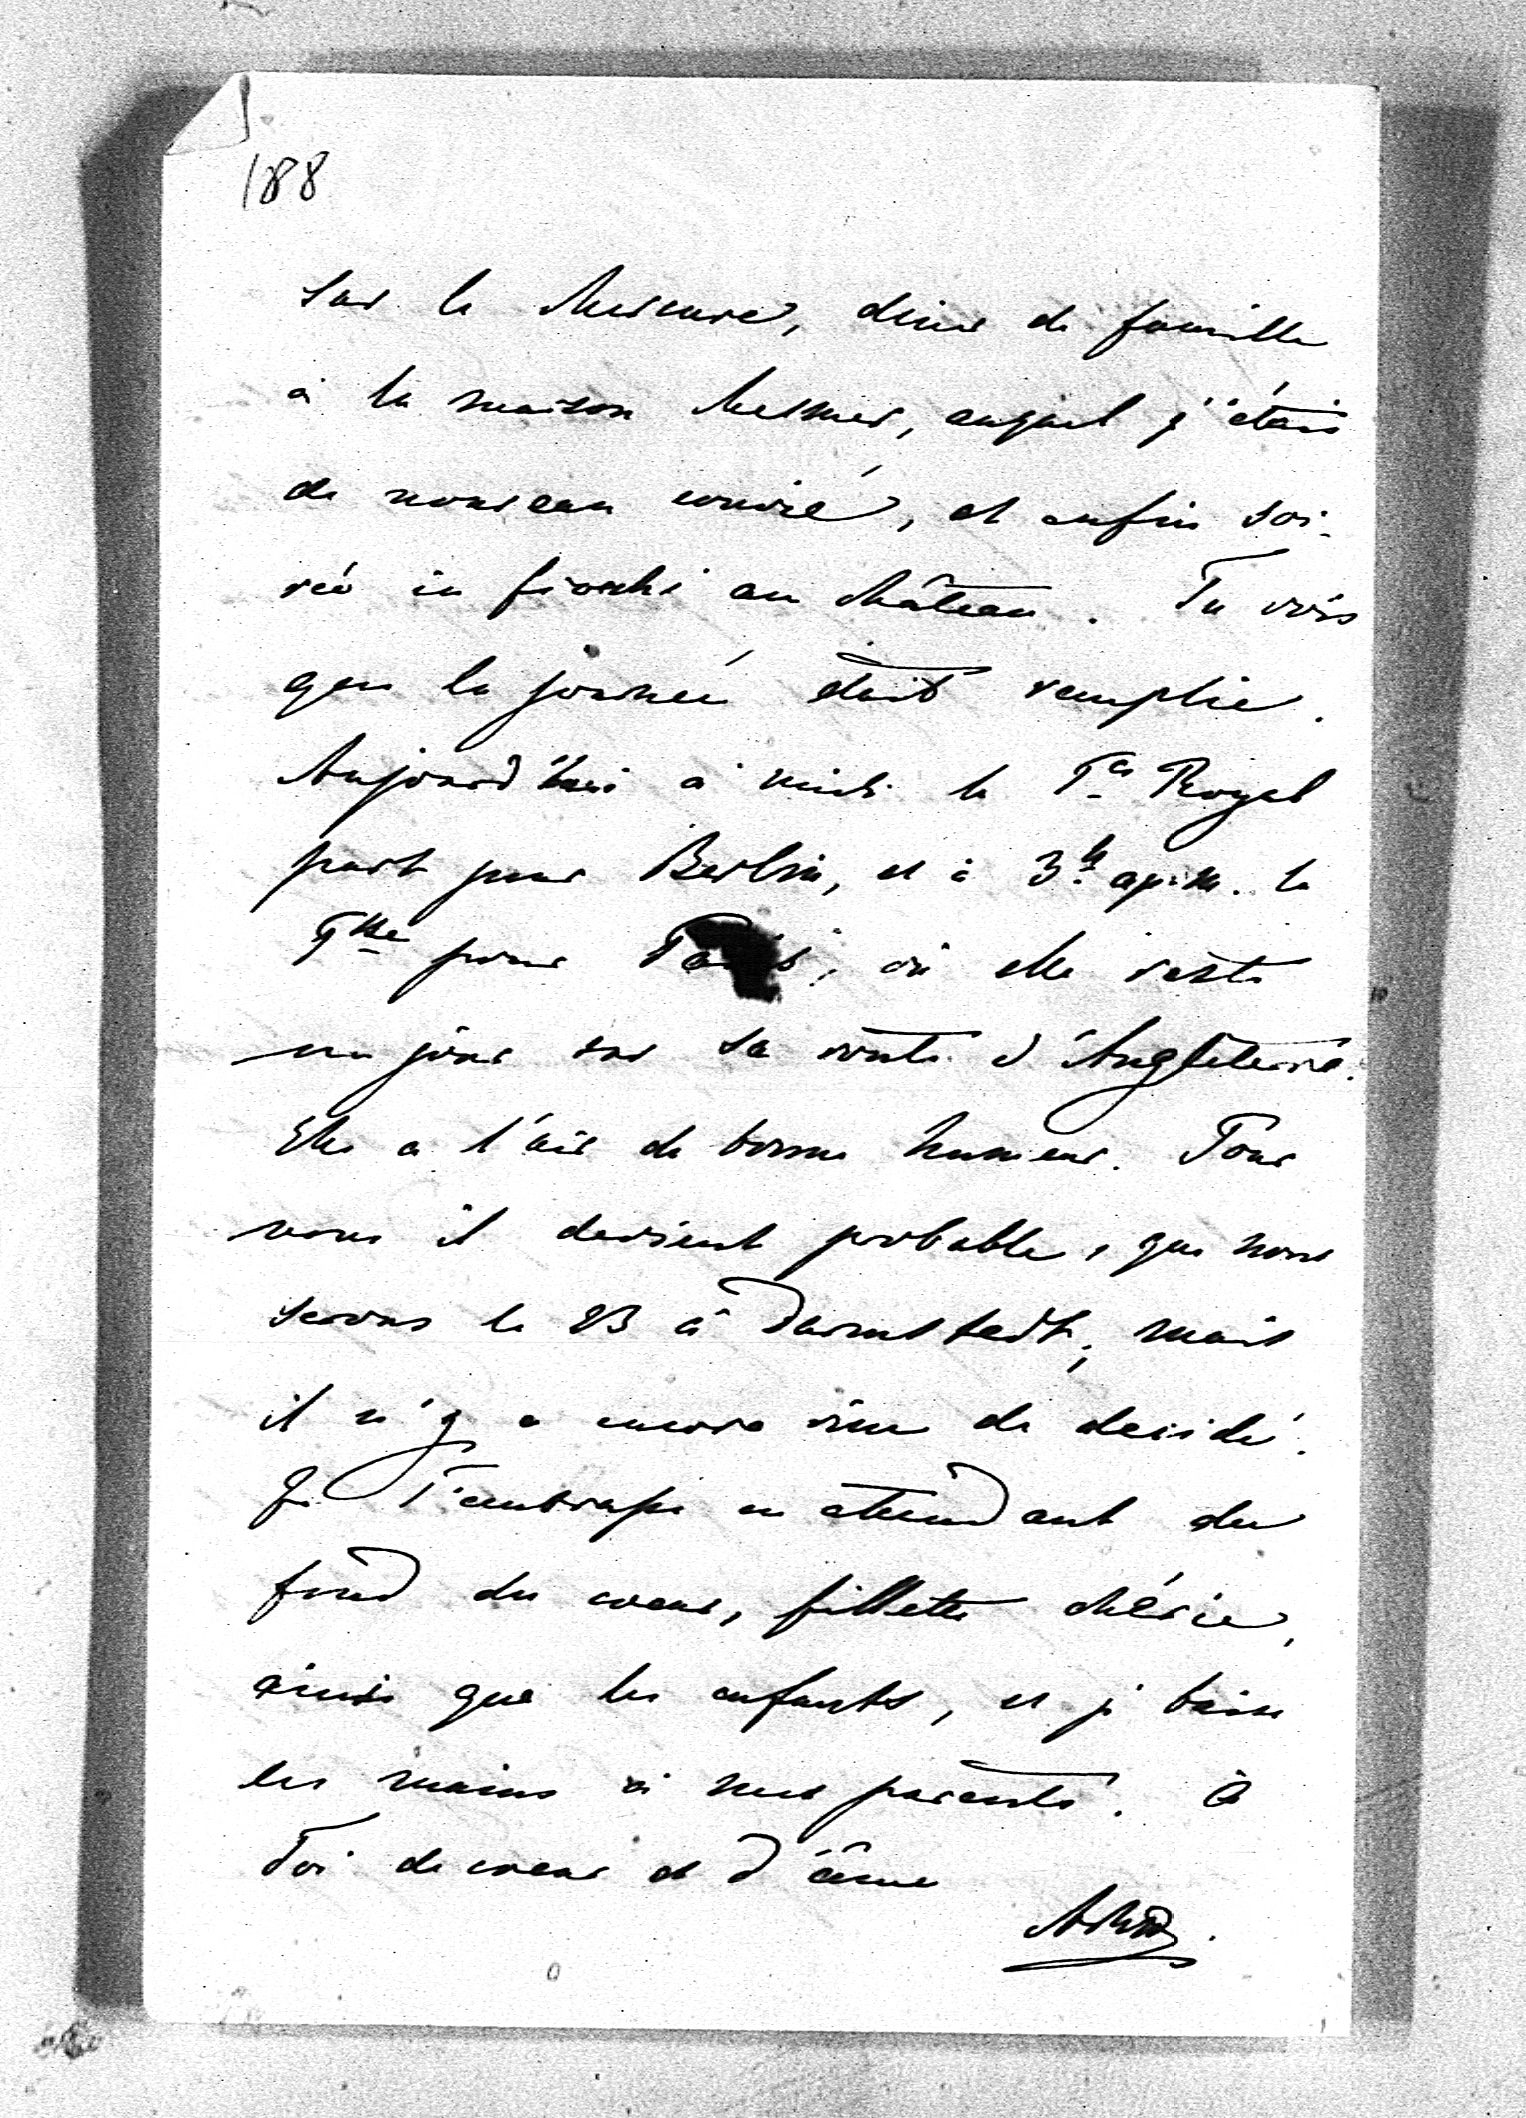 188
sur le Mercure, diner de famille
à la maison Mesmer, auquel j'étais
de nouveau convié, et enfin soi-
rée in fiocchi au château. Tu vois
que la journée était remplie.
Aujourd'hui à midi le Pce Royal
part pour Berlin, et à 3h ap. m. la
Psse pour Paris, où elle reste
un jour sur sa route d'Angleterre.
Elle a l'air de bonne humeur. Pour
nous il devient probable, que nous
serons le 23 à Darmstadt; mais
il n'y a encore rien de décidé.
Je T'embrasse en attendant du
fond du coeur, fillette chérie,
ainsi que les enfants, et je baise
les mains à mes parents. à
Toi de coeur et d'âme